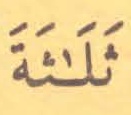 ثَلَٰثَةَ